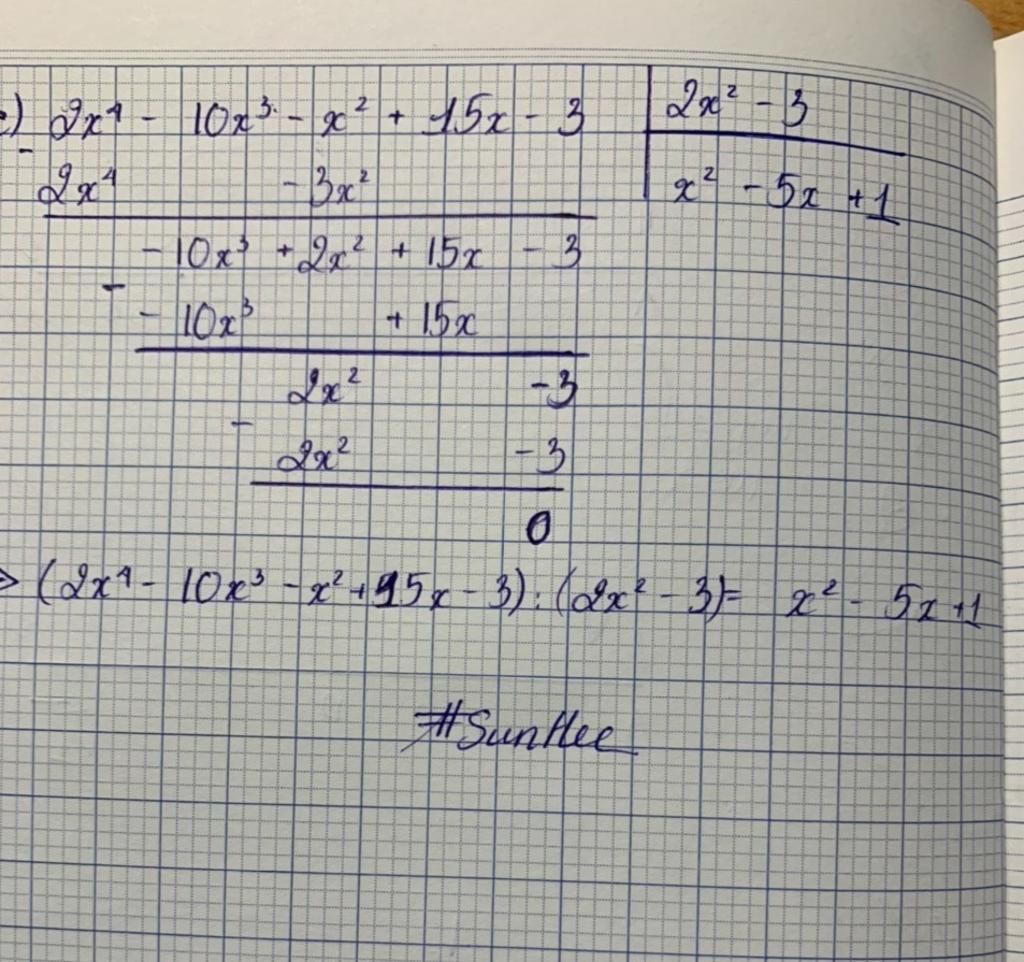 c) 2x⁴ - 10x³ - x² + 15x - 3 | 2x² - 3
- 2x⁴ - 3x² | x² - 5x + 1
- 10x³ + 2x² + 15x - 3
- - 10x³ + 15x
2x² - 3
- 2x² - 3
0
=> (2x⁴ - 10x³ - x² + 15x - 3) : (2x² - 3) = x² - 5x + 1
#SunHee